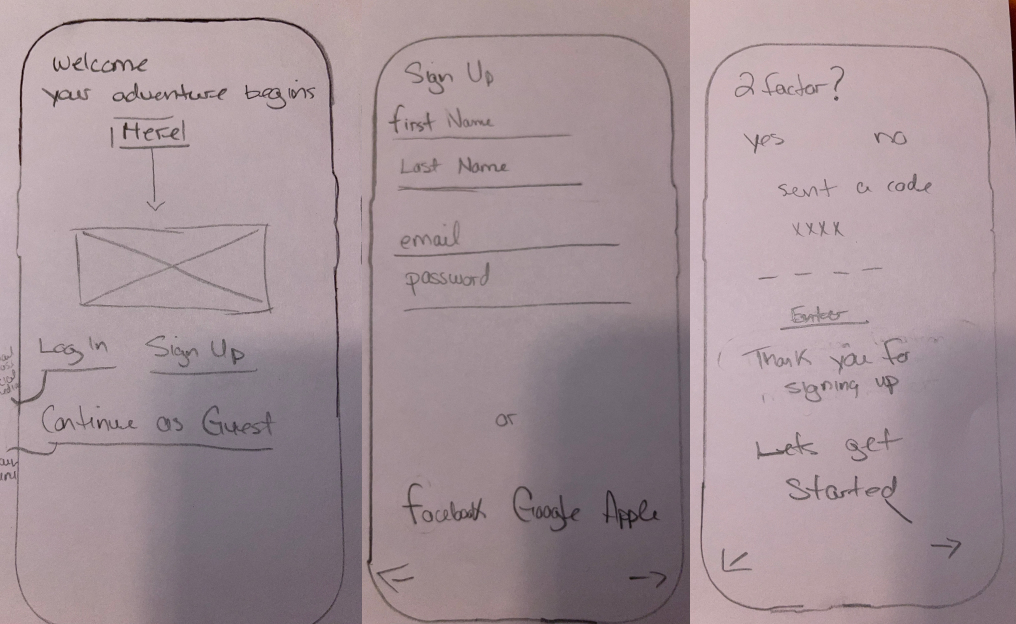 Welcome
your adventure begins
Here!
Log In Sign Up
Continue as Guest
Sign Up
first Name
Last Name
email
password
or
facebook Google Apple
2 factor?
yes no
sent a code
xxxx
Enter
Thank you for
signing up
Lets get
Started